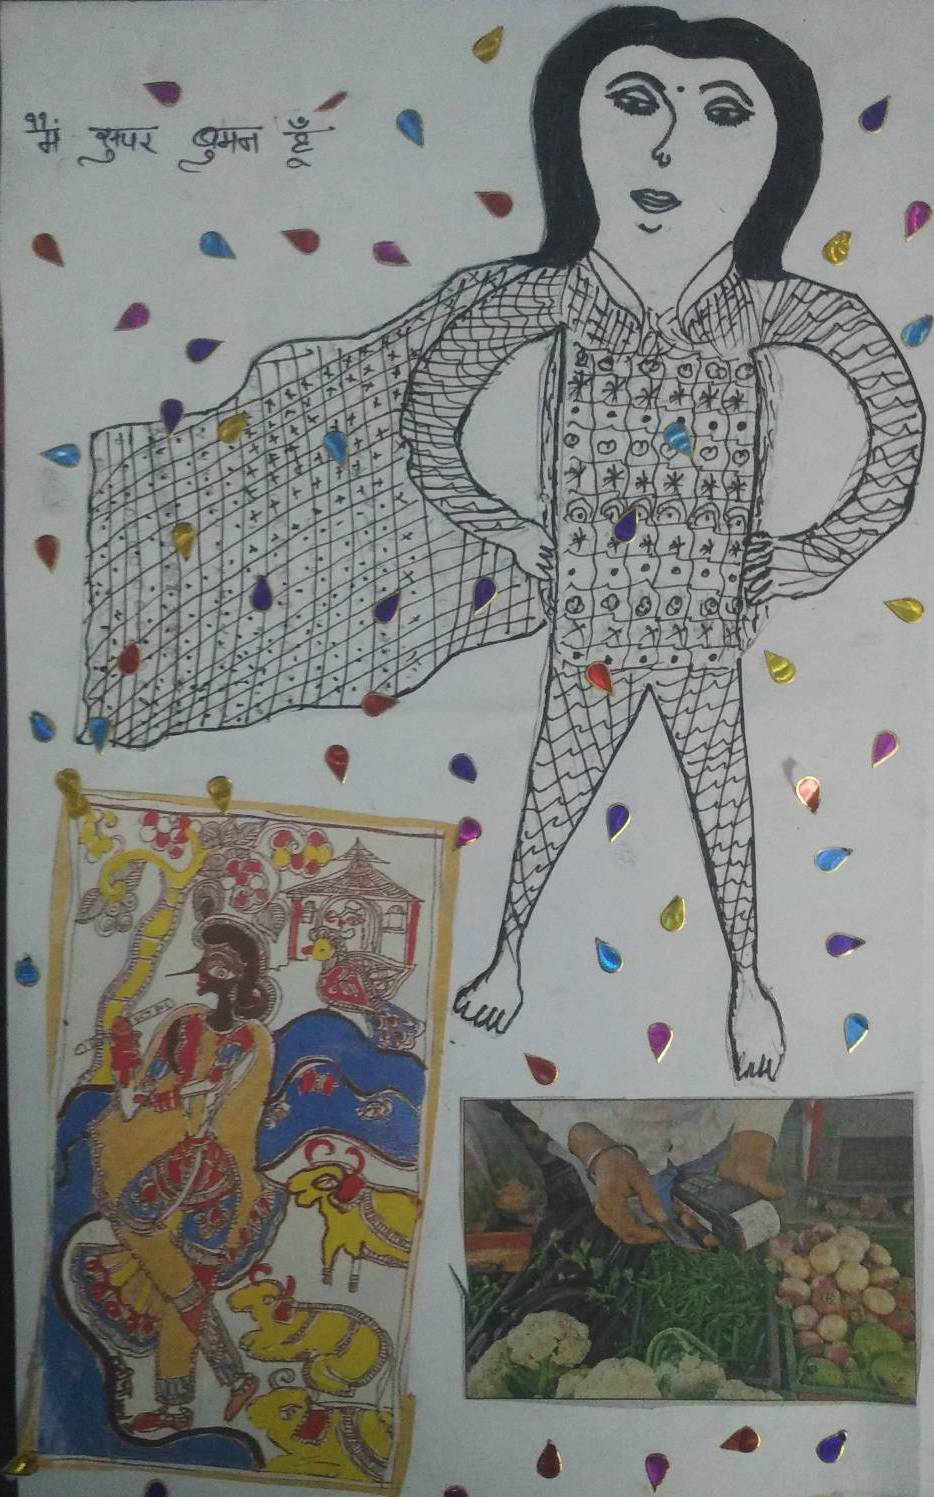 "मैं सुपर वुमन हूँ